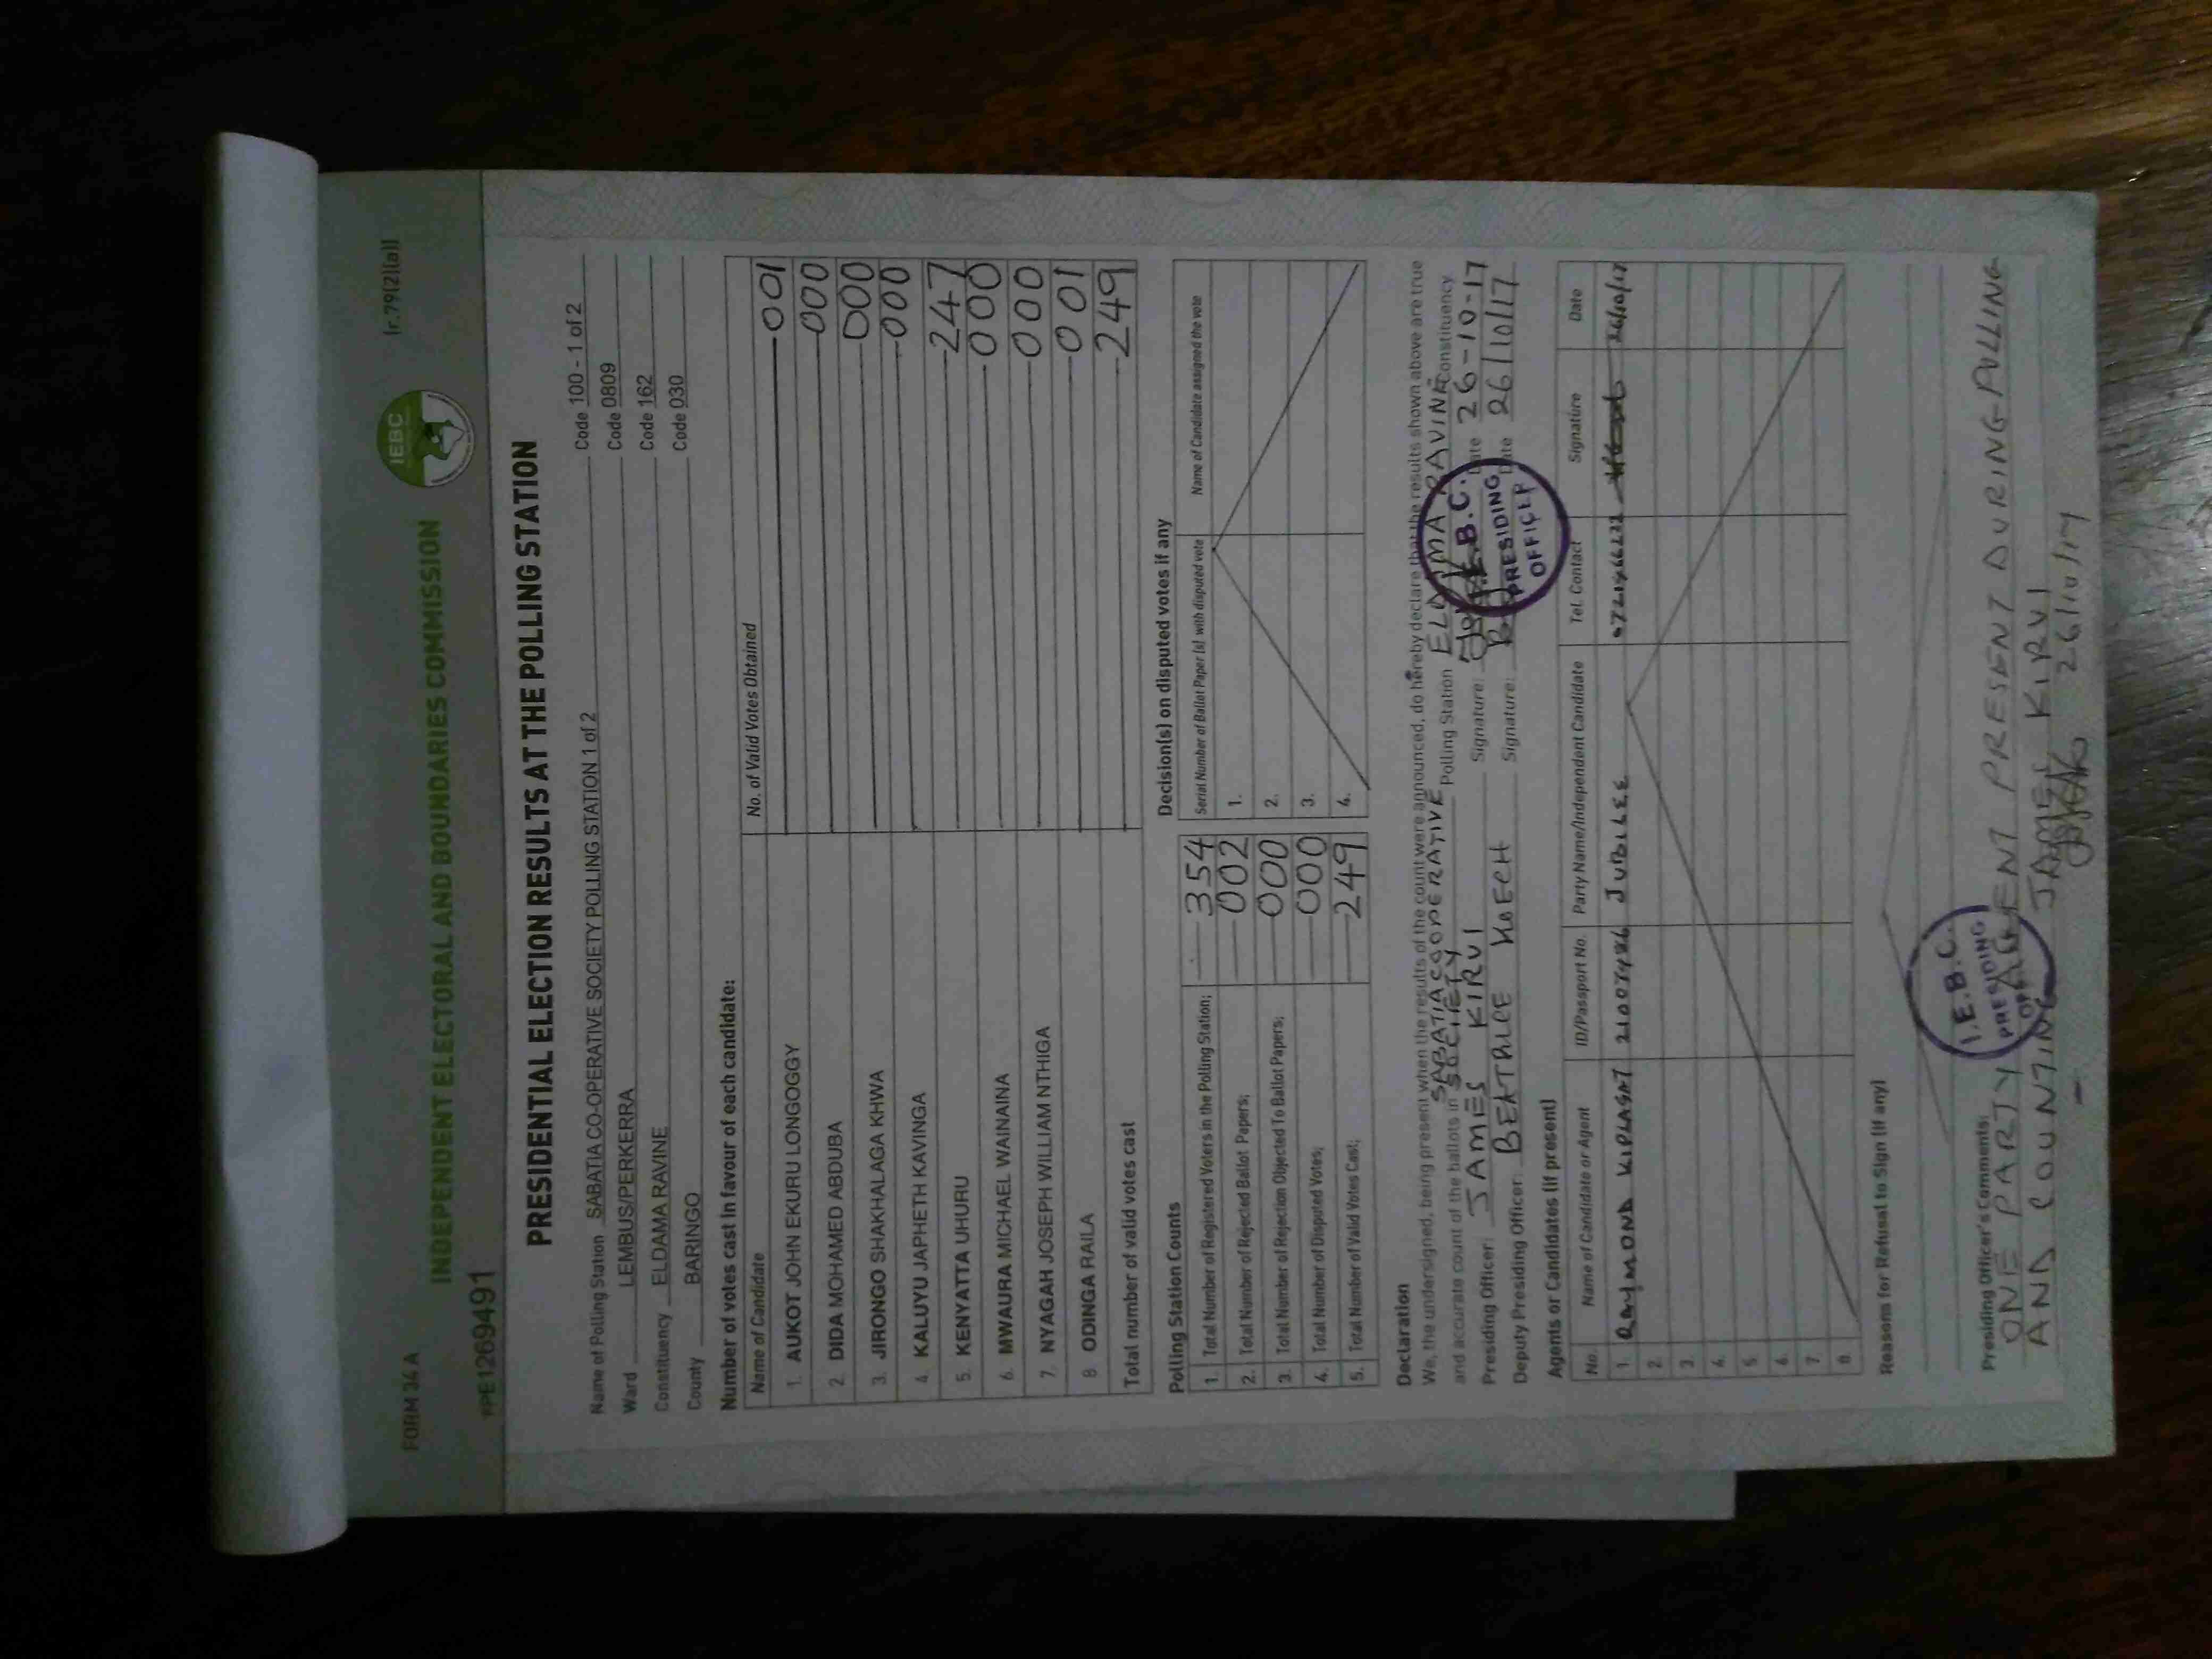 FORM 34 A
IEBC
[r.79(2)(a)]
INDEPENDENT ELECTORAL AND BOUNDARIES COMMISSION
PPE1269491
PRESIDENTIAL ELECTION RESULTS AT THE POLLING STATION
Name of Polling Station SABATIA CO-OPERATIVE SOCIETY POLLING STATION 1 of 2 Code 100 - 1 of 2
Ward LEMBUS/PERKERRA Code 0809
Constituency ELDAMA RAVINE Code 162
County BARINGO Code 030
Number of votes cast in favour of each candidate:
Name of Candidate No. of Valid Votes Obtained
1. AUKOT JOHN EKURU LONGOGGY 001
2 DIDA MOHAMED ABDUBA 000
3. JIRONGO SHAKHALAGA KHWA 000
4 KALUYU JAPHETH KAVINGA 000
5. KENYATTA UHURU 247
6. MWAURA MICHAEL WAINAINA 000
7. NYAGAH JOSEPH WILLIAM NTHIGA 000
8 ODINGA RAILA 001
Total number of valid votes cast 249
Polling Station Counts
1. Total Number of Registered Voters in the Polling Station; 354
2. Total Number of Rejected Ballot Papers; 002
3. Total Number of Rejection Objected To Ballot Papers; 000
4. Total Number of Disputed Votes; 000
5. Total Number of Valid Votes Cast; 249
Decision(s) on disputed votes if any
Serial Number of Ballot Paper (s) with disputed vote Name of Candidate assigned the vote
1.
2.
3.
4.
Declaration
We, the undersigned, being present when the results of the count were announced, do hereby declare that the results shown above are true
and accurate count of the ballots in SABATIA COOPERATIVE SOCIETY Polling Station ELDAMA RAVINE Constituency
Presiding Officer: JAMES KIRUI Signature: Date 26-10-17
Deputy Presiding Officer: BEATRICE KOECH Signature: Date 26/10/17
I.E.B.C.
PRESIDING
OFFICER
Agents or Candidates (if present)
No. Name of Candidate or Agent ID/Passport No. Party Name/Independent Candidate Tel. Contact Signature Date
1. RAYMOND KIPLAGAT JUBILEE 26/10/17
2.
3.
4.
5.
6.
7.
8.
Reasons for Refusal to Sign (if any)
I.E.B.C.
PRESIDING
Presiding Officer's Comments:
ONE PARTY AGENT PRESENT DURING PULLING
AND COUNTING JAMES KIRUI
26/10/17